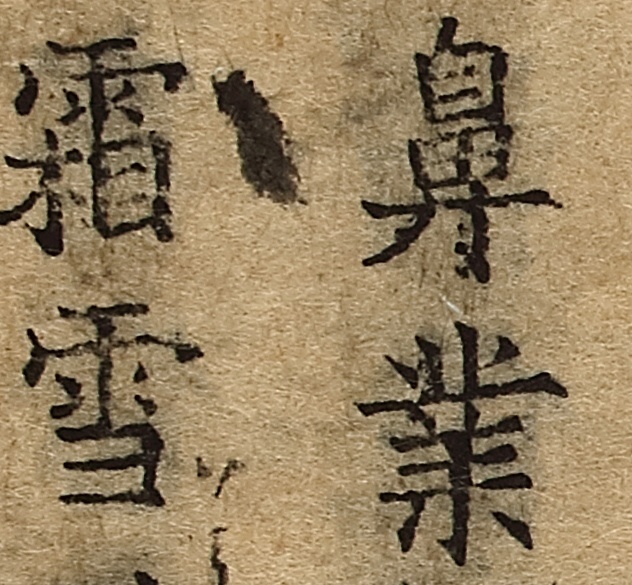 鼻業
霜雪